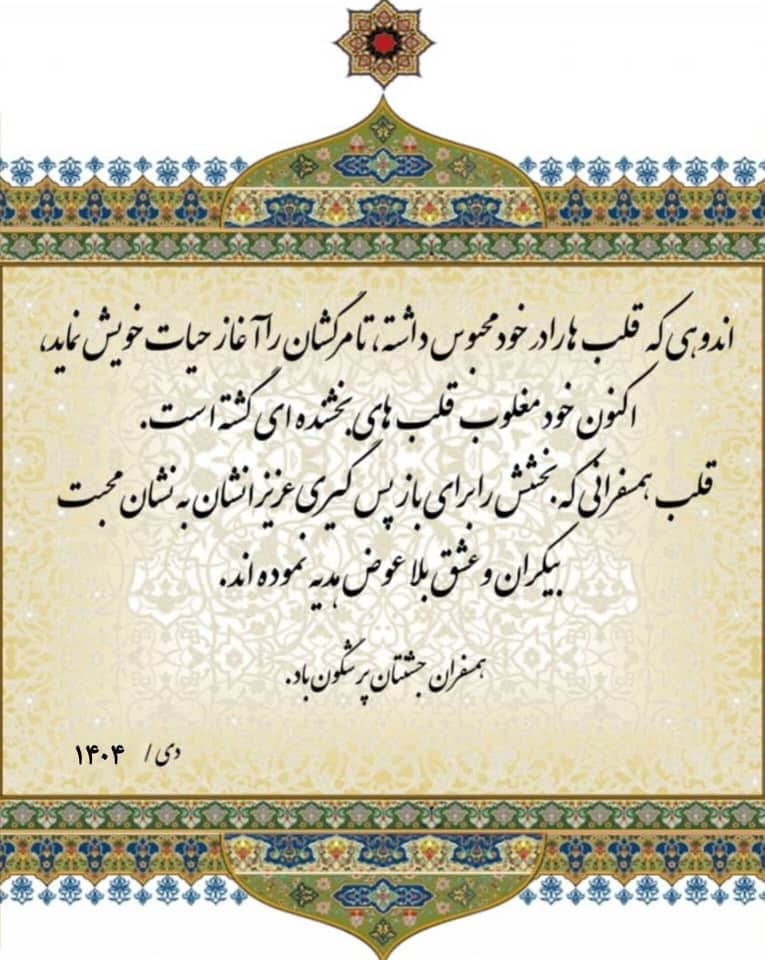 اندوهی که قلب ها را در خود محبوس داشته، تا مرگشان را آغاز حیات خویش نماید،
اکنون خود مغلوب قلب های بخشنده ای گشته است.
قلب همسفرانی که بخشش را برای باز پس گیری عزیزانشان به نشان محبت
بیکران و عشق بلاعوض هدیه نموده اند.
همسفران جشنتان پرشگون باد.
دی / ۱۴۰۴